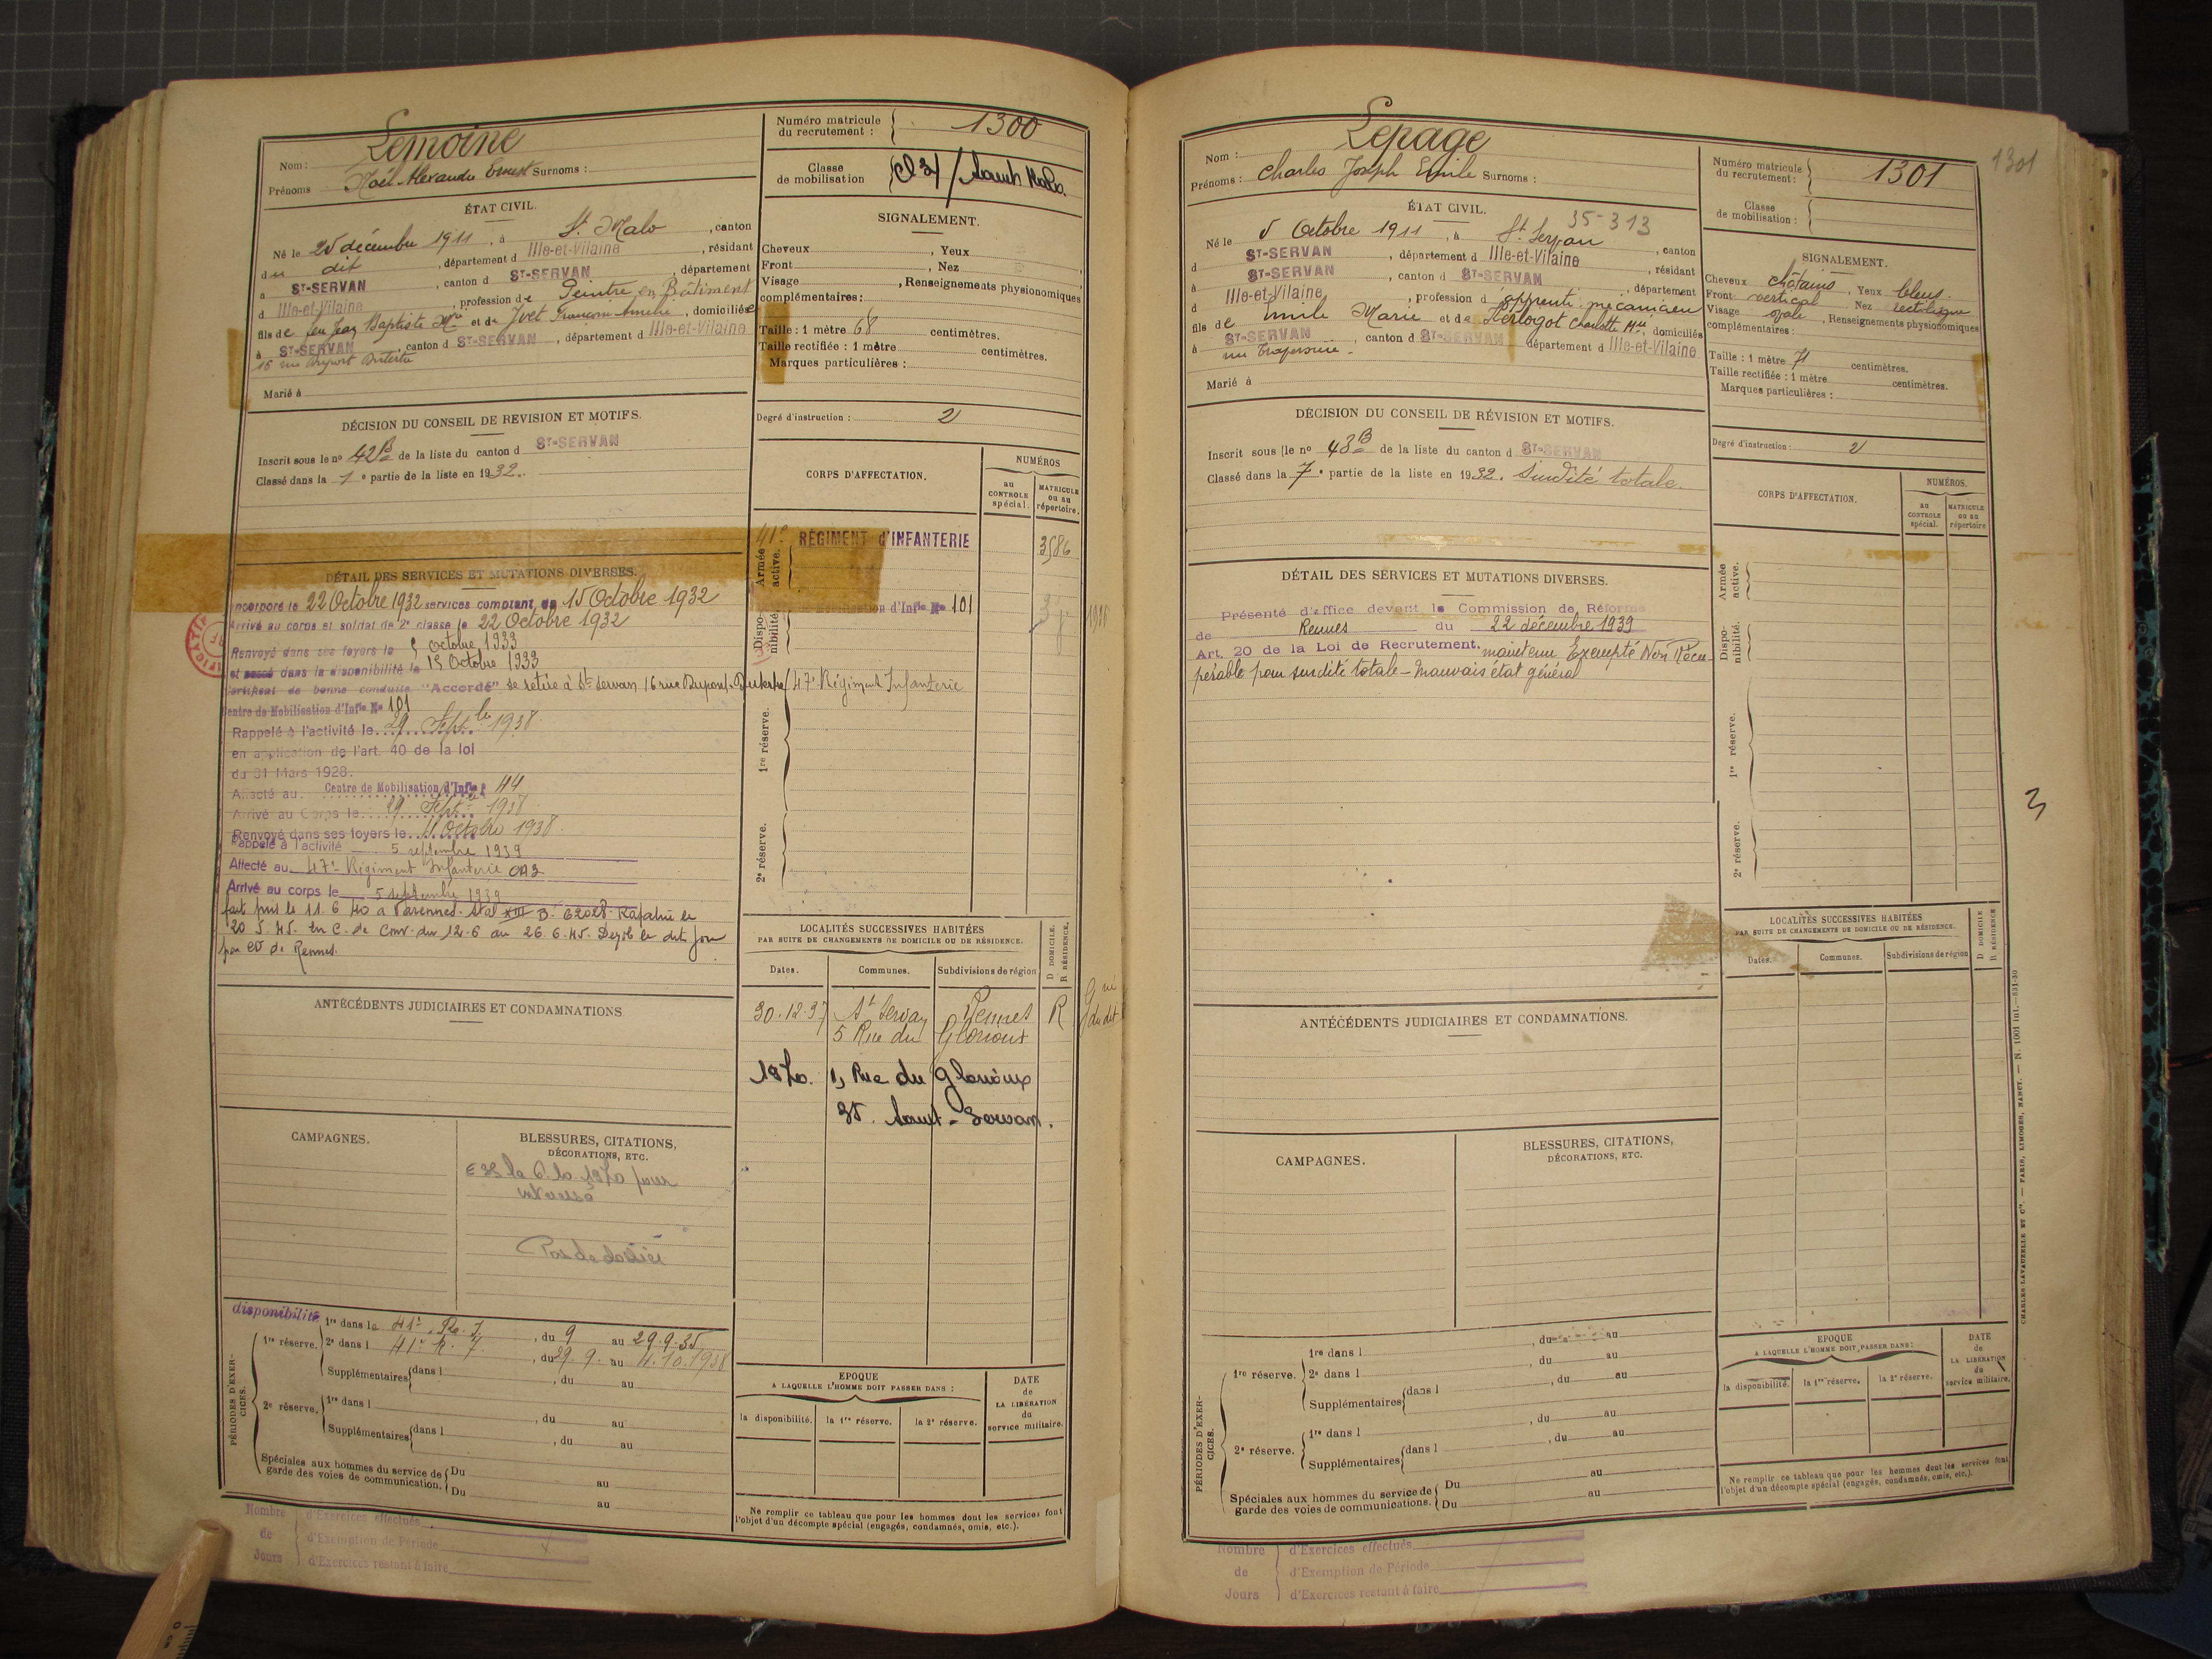 Nom : Lemoine
Prénoms Noël-Alexandre Ernest Surnoms :
Numéro matricule du recrutement : 1300
Classe de mobilisation
ÉTAT CIVIL.
Né le 25 décembre 1911, à St Malo, canton
du dit, département d Ille-et-Vilaine, résidant
à ST-SERVAN, canton d ST-SERVAN, département
d Ille-et-Vilaine, profession de Peintre en Bâtiment
fils de feu Jean Baptiste et de Françoise, domiciliée
à ST-SERVAN, canton d ST-SERVAN, département d Ille-et-Vilaine
16 rue
Marié à
SIGNALEMENT.
Cheveux , Yeux
Front , Nez
Visage , Renseignements physionomiques
complémentaires :
Taille : 1 mètre 68 centimètres.
Taille rectifiée : 1 mètre centimètres.
Marques particulières :
Degré d'instruction : 2
DÉCISION DU CONSEIL DE REVISION ET MOTIFS.
Inscrit sous le no 42B de la liste du canton d ST-SERVAN
Classé dans la 1e partie de la liste en 1932.
CORPS D'AFFECTATION.
NUMÉROS
au CONTROLE spécial.
MATRICULE ou au répertoire.
Armée active.
41e RÉGIMENT d'INFANTERIE 3586
Disponibilité.
Mobilisation d'Infie No 101
47e Régiment Infanterie
1re réserve.
2e réserve.
DÉTAIL DES SERVICES ET MUTATIONS DIVERSES.
Incorporé le 22 Octobre 1932 services comptant du 15 Octobre 1932
Arrivé au corps et soldat de 2e classe le 22 Octobre 1932
Renvoyé dans ses foyers le octobre 1933
et passé dans la disponibilité le 15 Octobre 1933
Certificat de bonne conduite "Accordé" se retire à St Servan 16 rue
Centre de Mobilisation d'Infie No 101
Rappelé à l'activité le 29 Septbre 1938
en application de l'art. 40 de la loi
du 31 Mars 1928.
Affecté au Centre de Mobilisation d'Infie
Arrivé au Corps le 29 Septbre 1938
Renvoyé dans ses foyers le Octobre 1938
Rappelé à l'activité 5 septembre 1939
Affecté au 47e Régiment Infanterie
Arrivé au corps le 5 septembre 1939
fait pris le 11.6.40 à Varennes. Stal XIII B. Rapatrié le
20.5.45. En C. de Conv. du 12.6 au 26.6.45. le dit jour
par de Rennes.
ANTÉCÉDENTS JUDICIAIRES ET CONDAMNATIONS
LOCALITÉS SUCCESSIVES HABITÉES
PAR SUITE DE CHANGEMENTS DE DOMICILE OU DE RÉSIDENCE.
Dates. Communes. Subdivisions de région
D DOMICILE. R RÉSIDENCE.
30.12.37 St Servan Rennes R
5 Rue du Glorioux
1970. 1, Rue du Glorioux
35. Saint-Servan.
CAMPAGNES.
BLESSURES, CITATIONS,
DÉCORATIONS, ETC.
Pas de dossier
disponibilité
PÉRIODES D'EXERCICES.
1re réserve. 1re dans le 41e R.I., du 9 au 29.9.35
2e dans l 41e R.I., du 29.9. au 10.1938
Supplémentaires dans l , du au
2e réserve. 1re dans l , du au
Supplémentaires dans l , du au
Spéciales aux hommes du service de garde des voies de communication. Du au
Du au
EPOQUE
A LAQUELLE L'HOMME DOIT PASSER DANS :
la disponibilité. la 1re réserve. la 2e réserve.
DATE de LA LIBÉRATION du service militaire.
Ne remplir ce tableau que pour les hommes dont les services font
l'objet d'un décompte spécial (engagés, condamnés, omis, etc.).
Nombre de Jours
d'Exercices effectués
d'Exemption de Période
d'Exercices restant à faire
Nom : Lepage
Prénoms : Charles Joseph Emile Surnoms :
Numéro matricule du recrutement : 1301
1301
Classe de mobilisation :
ÉTAT CIVIL. 35-313
Né le 5 Octobre 1911, à St Servan, canton
d ST-SERVAN, département d Ille-et-Vilaine, résidant
à ST-SERVAN, canton d ST-SERVAN, département
d Ille-et-Vilaine, profession d'apprenti mécanicien
fils de Emile Marie et de Charlotte Mie, domiciliés
à ST-SERVAN, canton d ST-SERVAN département d Ille-et-Vilaine
rue
Marié à
SIGNALEMENT.
Cheveux châtains, Yeux bleus.
Front vertical, Nez rectiligne
Visage ovale, Renseignements physionomiques
complémentaires :
Taille : 1 mètre 71 centimètres.
Taille rectifiée : 1 mètre centimètres.
Marques particulières :
Degré d'instruction : 2
DÉCISION DU CONSEIL DE RÉVISION ET MOTIFS.
Inscrit sous le no 43B de la liste du canton d ST-SERVAN
Classé dans la 7e partie de la liste en 1932. Surdité totale.
CORPS D'AFFECTATION.
NUMÉROS.
AU CONTROLE spécial.
MATRICULE ou au répertoire
Armée active.
Disponibilité.
1re réserve.
2e réserve.
DÉTAIL DES SERVICES ET MUTATIONS DIVERSES.
Présenté d'office devant la Commission de Réforme
de Rennes du 22 décembre 1939
Art. 20 de la Loi de Recrutement. maintenu Exempté Non Récu-
pérable pour surdité totale – Mauvais état général
3
ANTÉCÉDENTS JUDICIAIRES ET CONDAMNATIONS.
LOCALITÉS SUCCESSIVES HABITÉES
PAR SUITE DE CHANGEMENTS DE DOMICILE OU DE RÉSIDENCE.
Dates. Communes. Subdivisions de région
D DOMICILE R RÉSIDENCE
CAMPAGNES.
BLESSURES, CITATIONS,
DÉCORATIONS, ETC.
PÉRIODES D'EXERCICES.
1re réserve. 1re dans l , du au
2e dans l , du au
Supplémentaires dans l , du au
2e réserve. 1re dans l , du au
Supplémentaires dans l , du au
Spéciales aux hommes du service de garde des voies de communications. Du au
Du au
EPOQUE
A LAQUELLE L'HOMME DOIT PASSER DANS :
la disponibilité. la 1re réserve. la 2e réserve.
DATE de LA LIBÉRATION du service militaire.
Ne remplir ce tableau que pour les hommes dont les services font
l'objet d'un décompte spécial (engagés, condamnés, omis, etc.).
CHARLES-LAVAUZELLE ET Cie. — PARIS, LIMOGES, NANCY. — N. 1001 int.—831-30
Nombre de Jours
d'Exercices effectués
d'Exemption de Période
d'Exercices restant à faire